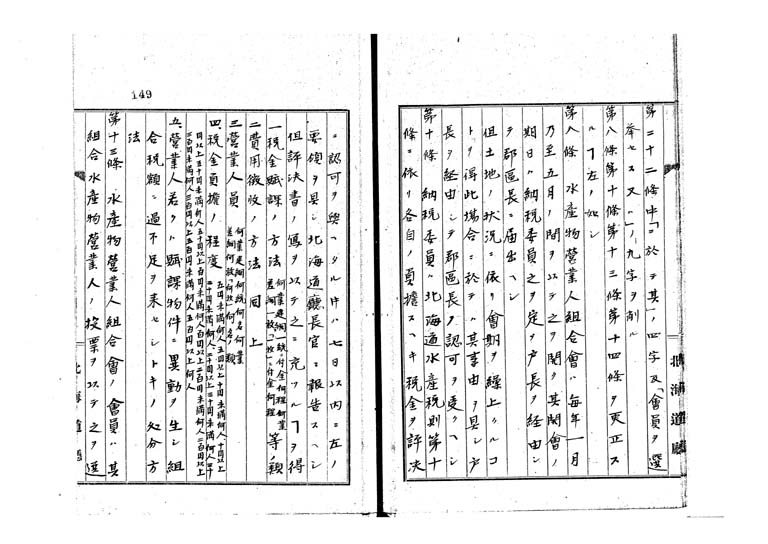 第二十二條中「於テ其」ノ四字及「會員ヲ選
挙セス又ハ」ノ九字ヲ削ル
第八條第十條第十三條第十四條ヲ更正ス
ルヿ左ノ如シ
第八條 水産物營業人組合會ハ毎年一月
乃至五月ノ間ヲ以テ之ヲ開ク其開會ノ
期日ハ納税委員之ヲ定メ戸長ヲ経由シ
テ郡區長ニ届出ヘシ
但土地ノ状況ニ依リ會期ヲ繰上クルコ
トヲ得此場合ニ於テハ其事由ヲ具シ戸
長ヲ経由シテ郡區長ノ認可ヲ受クヘシ
第十條 納税委員ハ北海道水産税則第十
條ニ依リ各自ノ負擔スヘキ税金ヲ評決
北海道廳
149
ニ認可ヲ與ヘタル片ハ七日以内ニ左ノ
要領ヲ具シ北海道廳長官ニ報告スヘシ
但評決書ノ寫ヲ以テ之ニ充ツルヿヲ得
一税金賦課ノ方法 等ノ類
二費用徴收ノ方法 同上
三營業人員 何業建網何統何名何業差網何放何名ノ類
四税金負擔ノ程度
五營業人若クハ賦課物件ニ異動ヲ生シ組
合税額ニ過不足ヲ来セシトキノ処分方
法
第十三條 水産物營業人組合會ノ會員ハ其
組合水産物營業人ノ投票ヲ以テ之ヲ選
北海道廳